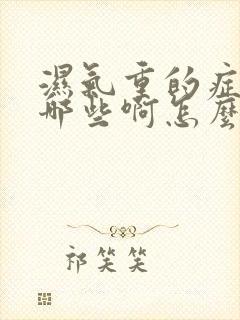 濕氣重的症
哪些啊怎麼
祁笑笑